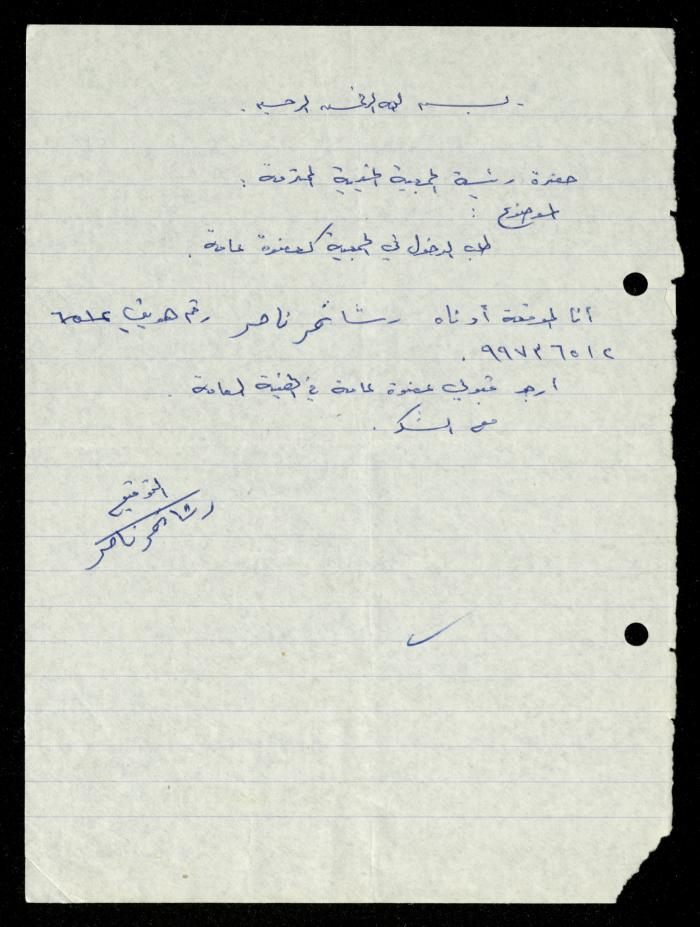 بسم الله الرحمن الرحيم .
حضرة رئيسة الجمعية الخيرية المحترمة :
الموضوع :
طلب الدخول في الجمعية كعضوة عامة .
أنا الموقعة أدناه رشا نمر ناصر رقم هويتي
٩٩٧٣٦٥١٢ .
أرجو قبولي عضوة عامة في الهيئة العامة .
مع الشكر .
التوقيع
رشا نمر ناصر